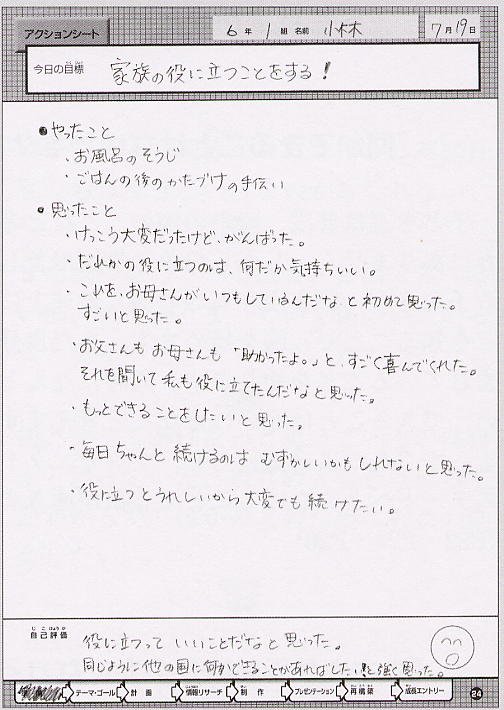 アクションシート
6年 1組 名前 小林 7月19日
今日の目標 家族の役に立つことをする!
●やったこと
・お風呂のそうじ
・ごはんの後のかたづけの手伝い
●思ったこと
・けっこう大変だったけど、がんばった。
・だれかの役に立つのは、何だか気持ちいい。
・これを、お母さんがいつもしているんだな と初めて思った。
すごいと思った。
・お父さんもお母さんも「助かったよ。」と、すごく喜んでくれた。
それを聞いて私も役に立てたんだなと思った。
・もっとできることをしたいと思った。
・毎日ちゃんと続けるのは むずかしいかもしれないと思った。
・役に立つとうれしいから大変でも続けたい。
自己評価
役に立つって いいことだなと思った。
同じように他の国に何かできることがあればしたいと強く思った。
テーマ・ゴール 計画 情報リサーチ 制作 プレゼンテーション 再構築 成長エントリー
24